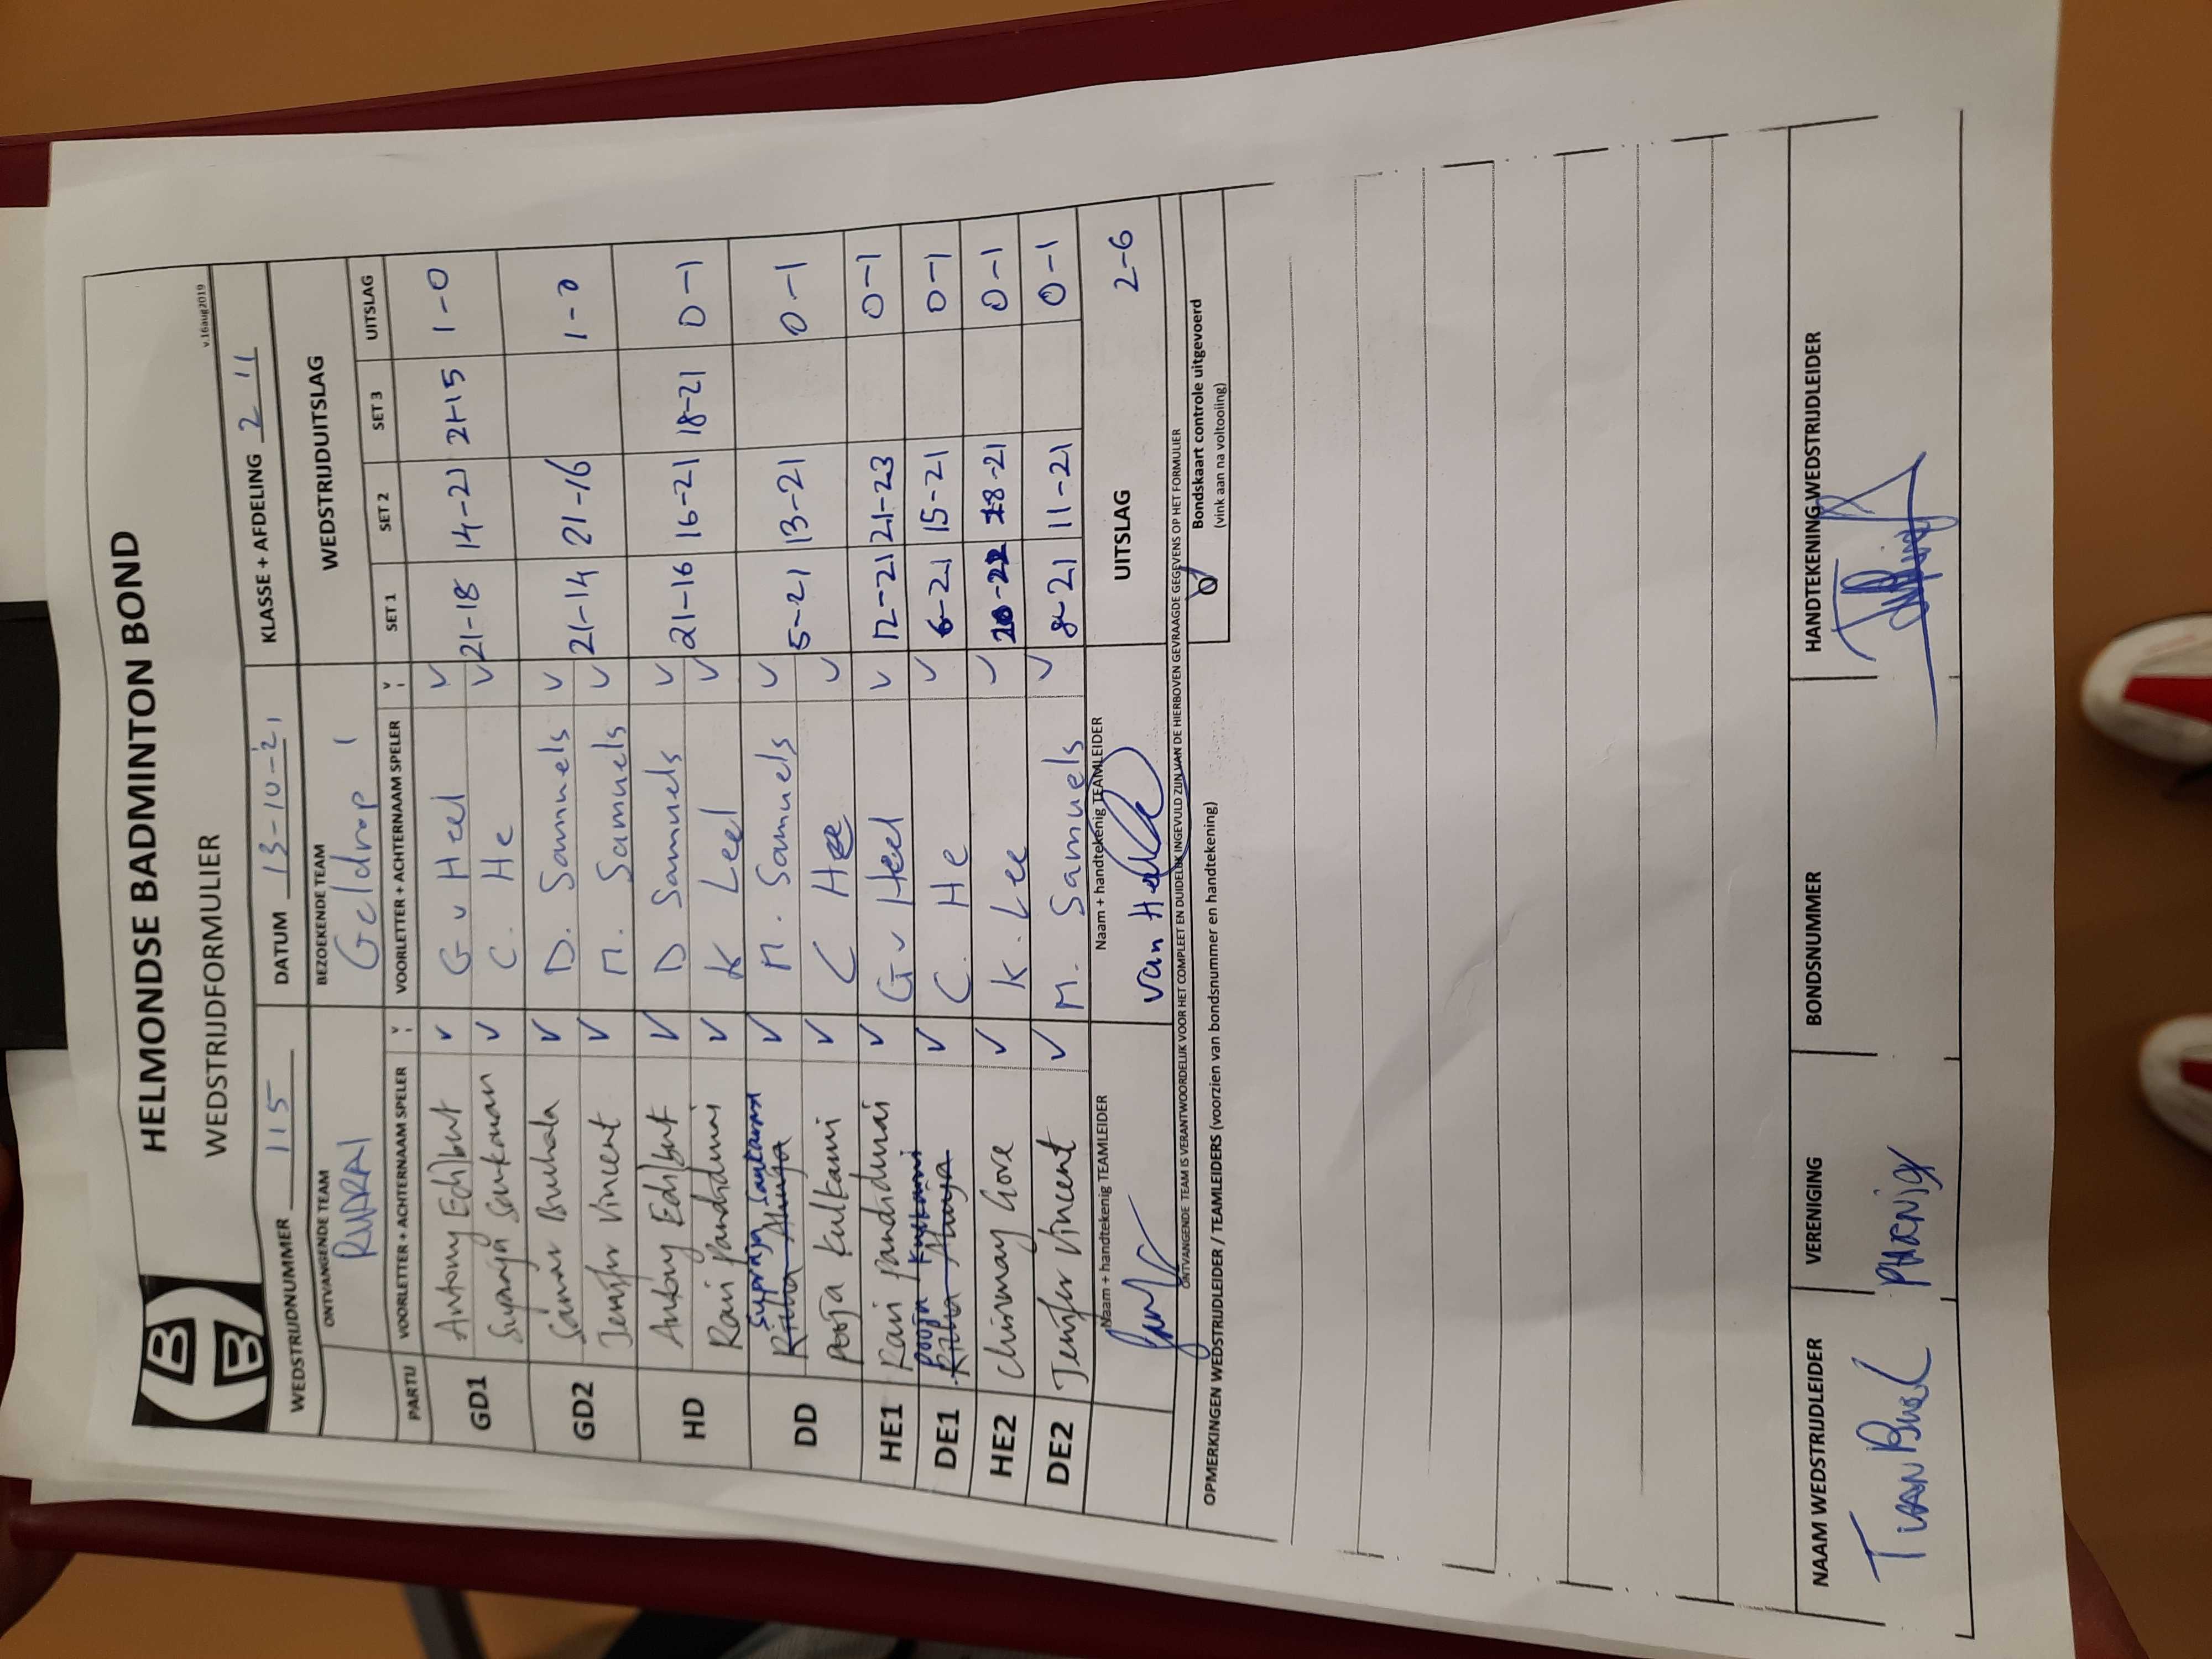 HELMONDSE BADMINTON BOND
WEDSTRIJDFORMULIER
v.16aug2019
WEDSTRIJDNUMMER 115 DATUM 13-10-'21 KLASSE + AFDELING 2 11
ONTVANGENDE TEAM BEZOEKENDE TEAM WEDSTRIJDUITSLAG
RUDRA1 Geldrop 1
PARTIJ VOORLETTER + ACHTERNAAM SPELER V VOORLETTER + ACHTERNAAM SPELER V SET 1 SET 2 SET 3 UITSLAG
GD1 Antony Edilbut V G v Heel V 21-18 14-21 21-15 1-0
Supraja V C. He V
GD2 Samar V D. Sammuels V 21-14 21-16 1-0
Jenifer Vincent V M. Samuels V
HD Antony Edilbut V D Samuels V 21-16 16-21 18-21 0-1
Ravi Pandidurai V K Lee V
DD Supraja V M. Samuels V 5-21 13-21 0-1
Richa Ahuja
Pooja Kulkarni V C Hee V
HE1 Ravi Pandidurai V G v Heel V 12-21 21-23 0-1
DE1 Pooja Kulkarni V C. He V 6-21 15-21 0-1
Richa Ahuja
HE2 Chinmay Gore V K. Lee V 20-22 18-21 0-1
DE2 Jenifer Vincent V M. Samuels V 8-21 11-21 0-1
Naam + handtekenig TEAMLEIDER Naam + handtekenig TEAMLEIDER UITSLAG 2-6
van Heel
ONTVANGENDE TEAM IS VERANTWOORDELIJK VOOR HET COMPLEET EN DUIDELIJK INGEVULD ZIJN VAN DE HIERBOVEN GEVRAAGDE GEGEVENS OP HET FORMULIER
OPMERKINGEN WEDSTRIJDLEIDER / TEAMLEIDERS (voorzien van bondsnummer en handtekening)
Bondskaart controle uitgevoerd
(vink aan na voltooiing)
NAAM WEDSTRIJDLEIDER VERENIGING BONDSNUMMER HANDTEKENING WEDSTRIJDLEIDER
T van PHOENIX